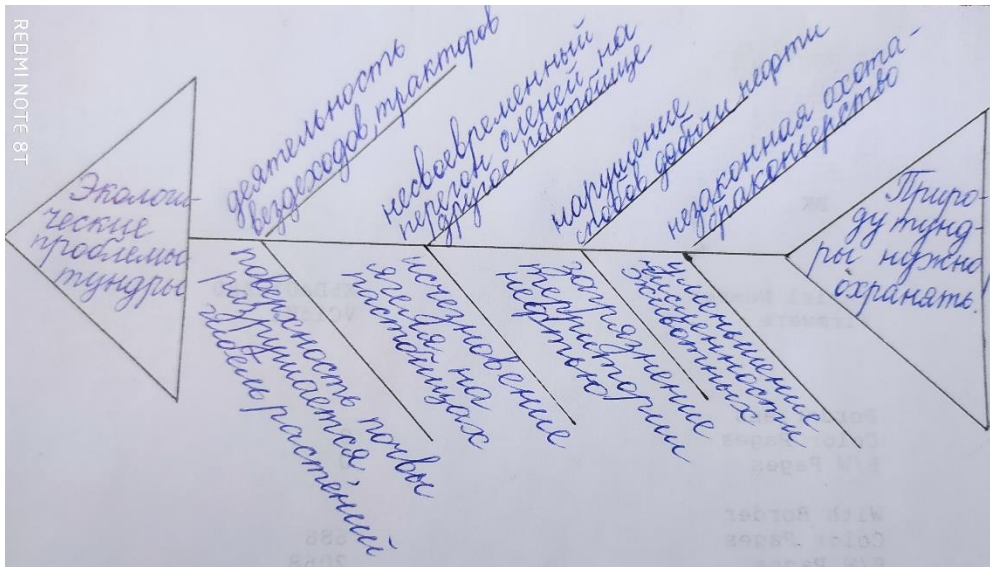 REDMI NOTE 8T
Экологи-
ческие
проблемы
тундры
деятельность
вездеходов, тракторов
несвоевременный
перегон оленей на
другое пастбище
нарушение
способов добычи нефти
незаконная охота-
браконьерство
поверхность почвы
разрушается,
гибель растений
исчезновение
ягеля на
пастбищах
загрязнение
территории
нефтью
уменьшение
численности
животных
Приро-
ду тунд-
ры нужно
охранять!